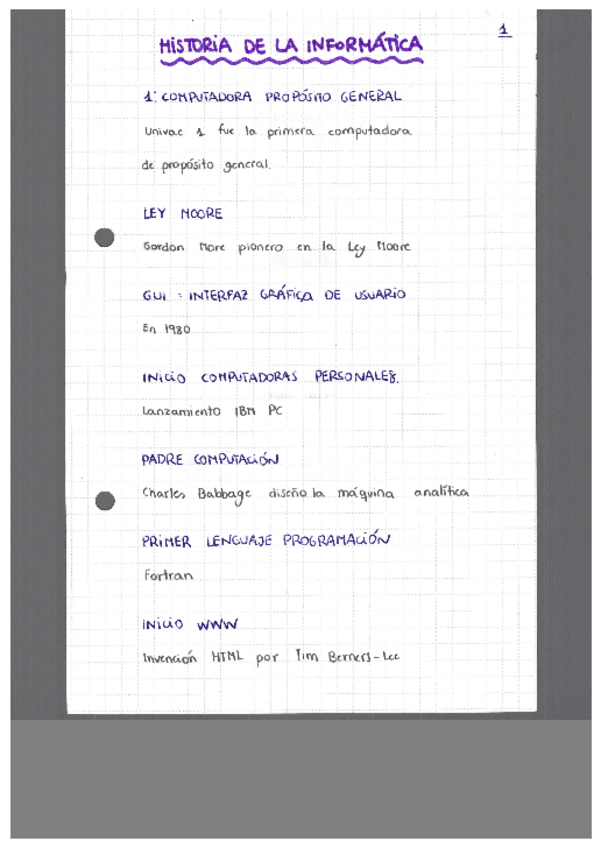 1
HISTORIA DE LA INFORMÁTICA
1ª COMPUTADORA PROPÓSITO GENERAL
Univac 1 fue la primera computadora
de propósito general.
LEY MOORE
Gordon More pionero en la Ley Moore
GUI : INTERFAZ GRÁFICA DE USUARIO
En 1980
INICIO COMPUTADORAS PERSONALES.
Lanzamiento IBM PC
PADRE COMPUTACIÓN
Charles Babbage diseño la máquina analítica
PRIMER LENGUAJE PROGRAMACIÓN
Fortran
INICIO WWW
Invención HTML por Tim Berners-Lee